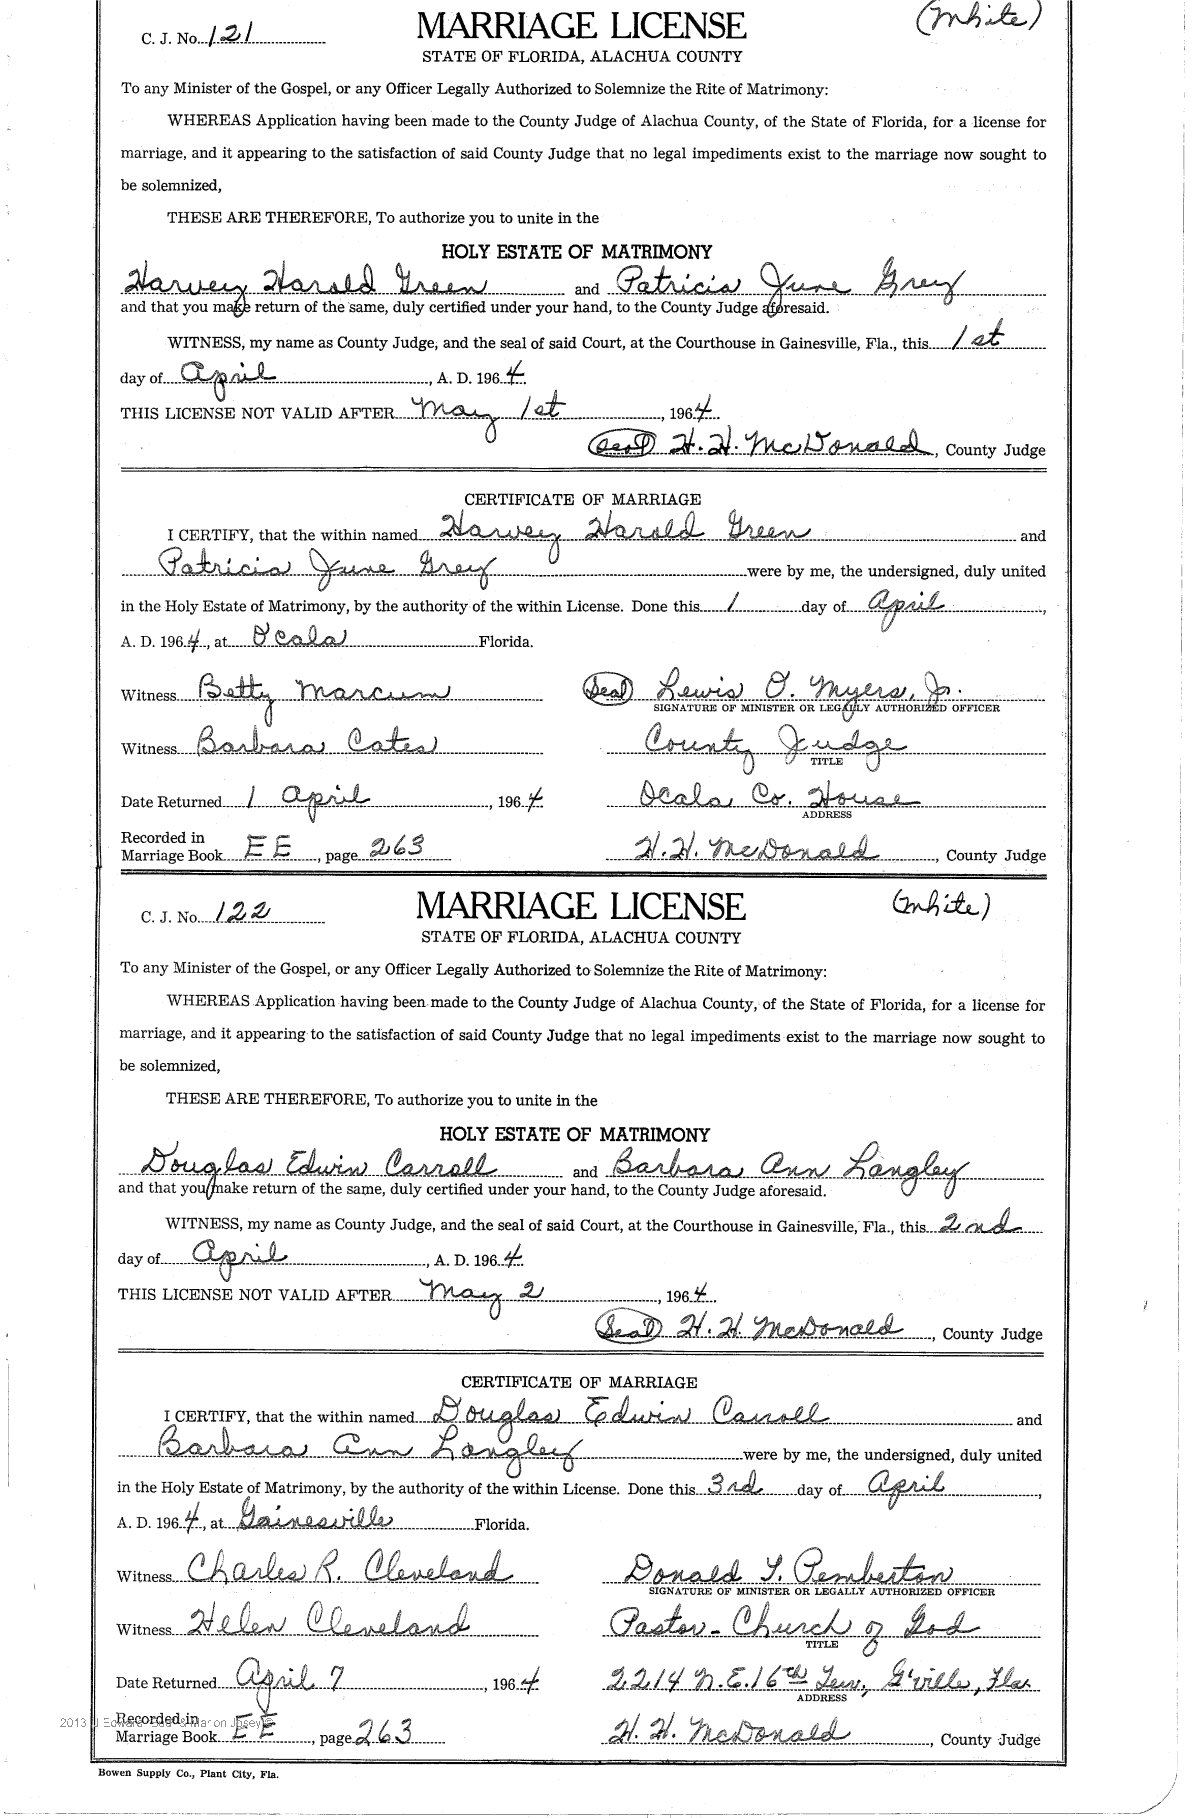 C. J. No. 121
MARRIAGE LICENSE
(White)
STATE OF FLORIDA, ALACHUA COUNTY
To any Minister of the Gospel, or any Officer Legally Authorized to Solemnize the Rite of Matrimony:
WHEREAS Application having been made to the County Judge of Alachua County, of the State of Florida, for a license for
marriage, and it appearing to the satisfaction of said County Judge that no legal impediments exist to the marriage now sought to
be solemnized,
THESE ARE THEREFORE, To authorize you to unite in the
HOLY ESTATE OF MATRIMONY
Harvey Harold Green and Patricia June Grey
and that you make return of the same, duly certified under your hand, to the County Judge aforesaid.
WITNESS, my name as County Judge, and the seal of said Court, at the Courthouse in Gainesville, Fla., this 1st
day of April, A. D. 1964.
THIS LICENSE NOT VALID AFTER May 1st, 1964.
(Seal) H. H. McDonald, County Judge
CERTIFICATE OF MARRIAGE
I CERTIFY, that the within named Harvey Harold Green and
Patricia June Grey were by me, the undersigned, duly united
in the Holy Estate of Matrimony, by the authority of the within License. Done this 1 day of April,
A. D. 1964, at Ocala Florida.
Witness Betty Marcum (Seal) Lewis O. Myers, Jr.
SIGNATURE OF MINISTER OR LEGALLY AUTHORIZED OFFICER
Witness Barbara Cates County Judge
TITLE
Date Returned 1 April, 1964 Ocala Co. House
ADDRESS
Recorded in
Marriage Book EE, page 263 H. H. McDonald, County Judge
C. J. No. 122
MARRIAGE LICENSE
(White)
STATE OF FLORIDA, ALACHUA COUNTY
To any Minister of the Gospel, or any Officer Legally Authorized to Solemnize the Rite of Matrimony:
WHEREAS Application having been made to the County Judge of Alachua County, of the State of Florida, for a license for
marriage, and it appearing to the satisfaction of said County Judge that no legal impediments exist to the marriage now sought to
be solemnized,
THESE ARE THEREFORE, To authorize you to unite in the
HOLY ESTATE OF MATRIMONY
Douglas Edwin Carroll and Barbara Ann Langley
and that you make return of the same, duly certified under your hand, to the County Judge aforesaid.
WITNESS, my name as County Judge, and the seal of said Court, at the Courthouse in Gainesville, Fla., this 2nd
day of April, A. D. 1964.
THIS LICENSE NOT VALID AFTER May 2, 1964.
(Seal) H. H. McDonald, County Judge
CERTIFICATE OF MARRIAGE
I CERTIFY, that the within named Douglas Edwin Carroll and
Barbara Ann Langley were by me, the undersigned, duly united
in the Holy Estate of Matrimony, by the authority of the within License. Done this 3rd day of April,
A. D. 1964, at Gainesville Florida.
Witness Charles R. Cleveland Donald T. Pemberton
SIGNATURE OF MINISTER OR LEGALLY AUTHORIZED OFFICER
Witness Helen Cleveland Pastor - Church of God
TITLE
Date Returned April 7, 1964 2214 N.E. 16th Terr, G'ville, Fla.
ADDRESS
Recorded in
Marriage Book EE, page 263 H. H. McDonald, County Judge
Bowen Supply Co., Plant City, Fla.